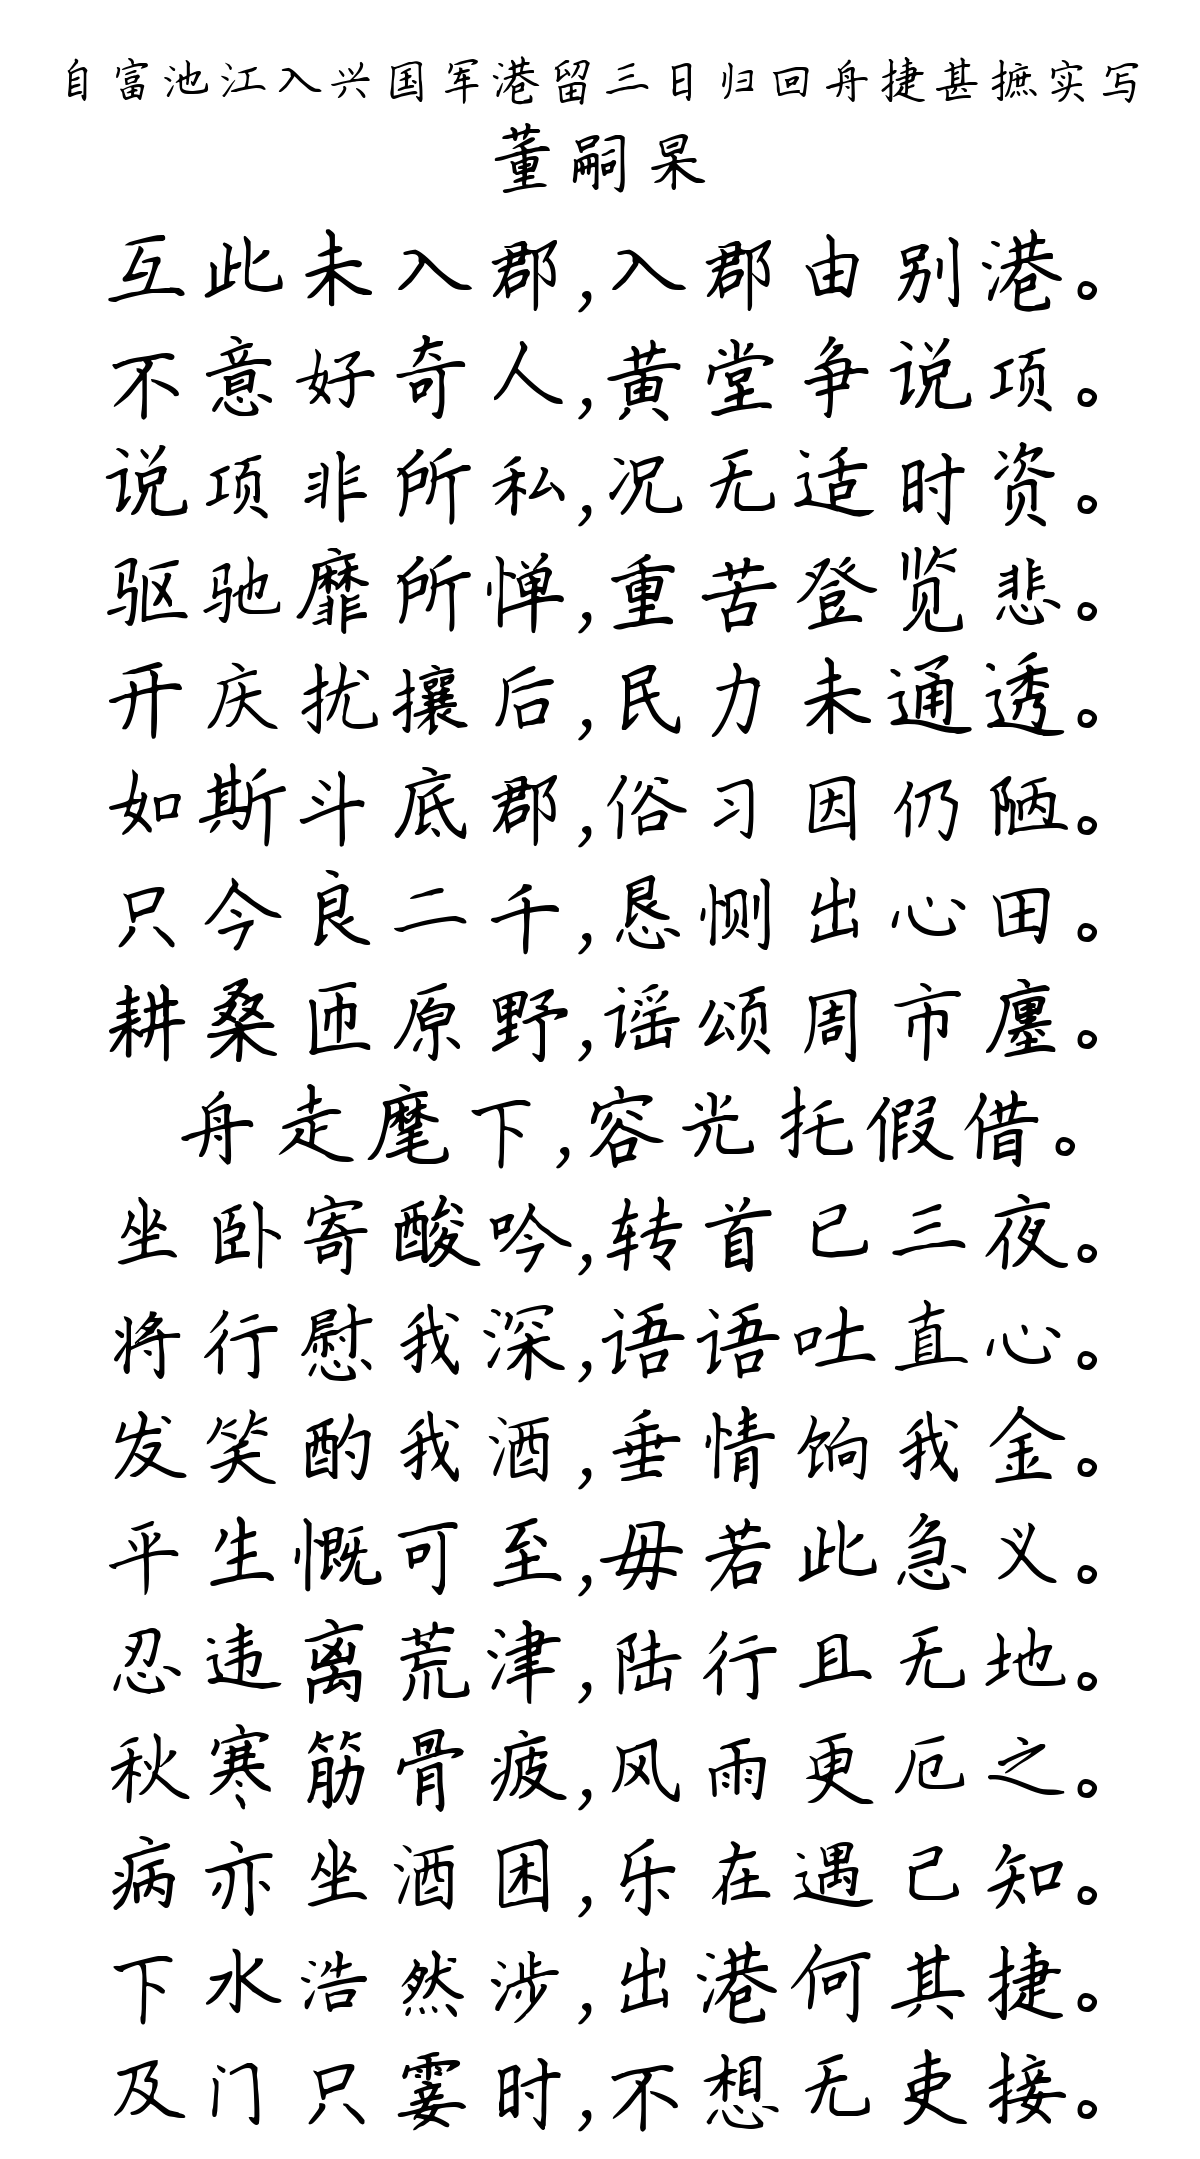 自富池江入兴国军港留三日归回舟捷甚摭实写
董嗣杲
互此未入郡,入郡由别港。
不意好奇人,黄堂争说项。
说项非所私,况无适时资。
驱驰靡所惮,重苦登览悲。
开庆扰攘后,民力未通透。
如斯斗底郡,俗习因仍陋。
只今良二千,恳恻出心田。
耕桑匝原野,谣颂周市廛。
舟走麾下,容光托假借。
坐卧寄酸吟,转首已三夜。
将行慰我深,语语吐直心。
发笑酌我酒,垂情饷我金。
平生慨可至,毋若此急义。
忍违离荒津,陆行且无地。
秋寒筋骨疲,风雨更厄之。
病亦坐酒困,乐在遇己知。
下水浩然涉,出港何其捷。
及门只霎时,不想无吏接。